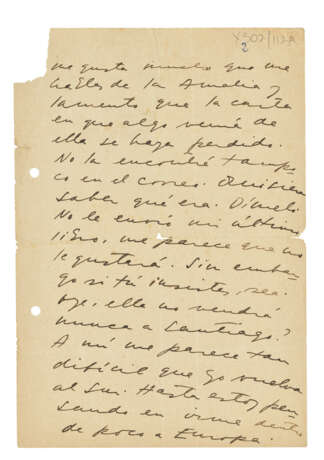 X507/112A
2
me gusta mucho que me
hables de la Amelia y
lamento que la carta
en que algo venía de
ella se haya perdido.
No la encontré tampo
co en el correo. Quisiera
saber qué era. Dímelo.
No le envío mi último
libro, me parece que no
le gustará. Sin embar
go si tú insistes, sea.
Oye, ella no vendrá
nunca a Santiago?
A mí me parece tan
difícil que yo vuelva
al Sur. Hasta estoy pen
sando en irme dentro
de poco a Europa.